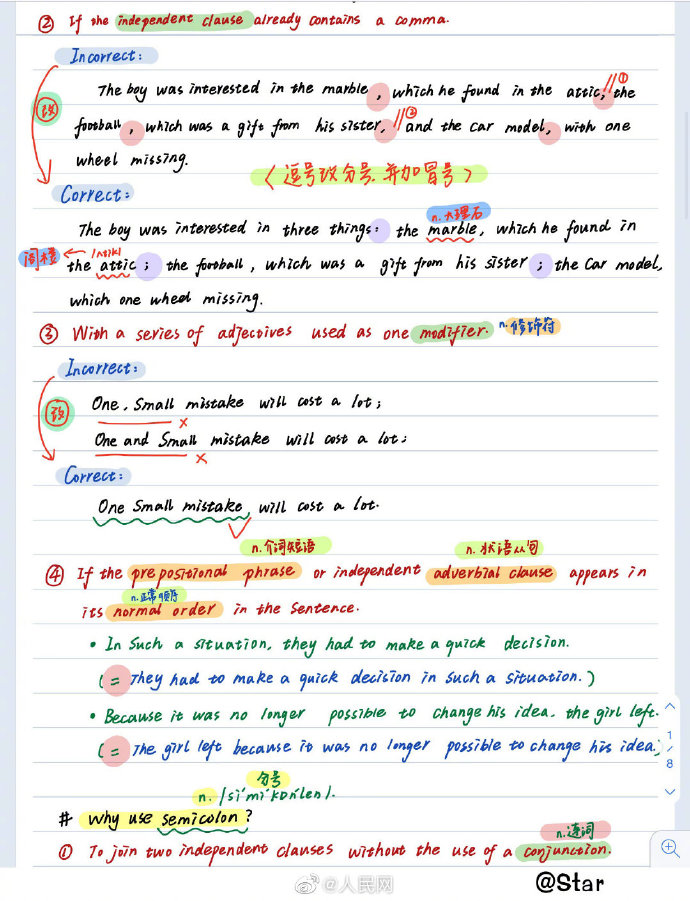 ② If the independent clause already contains a comma.
Incorrect:
改
The boy was interested in the marble, which he found in the attic, the ①
football, which was a gift from his sister, ② and the car model, with one
wheel missing.
〈逗号改分号, 并加冒号〉
Correct:
n. 大理石
The boy was interested in three things: the marble, which he found in
阁楼
the attic; the football, which was a gift from his sister; the car model,
which one wheel missing.
③ With a series of adjectives used as one modifier. n. 修饰符
Incorrect:
改
One, Small mistake will cost a lot; ×
One and Small mistake will cost a lot; ×
Correct:
One Small mistake, will cost a lot.
n. 介词短语 n. 状语从句
④ If the prepositional phrase or independent adverbial clause appears in
n. 正常顺序
its normal order in the sentence.
• In Such a situation, they had to make a quick decision.
( = They had to make a quick decision in such a situation.)
• Because it was no longer possible to change his idea, the girl left.
( = The girl left because it was no longer possible to change his idea.)
1
/
8
分号
n. /si'mi'kɒn'len/.
# Why use semicolon?
n. 连词
① To join two independent clauses without the use of a conjunction.
@人民网
@Star